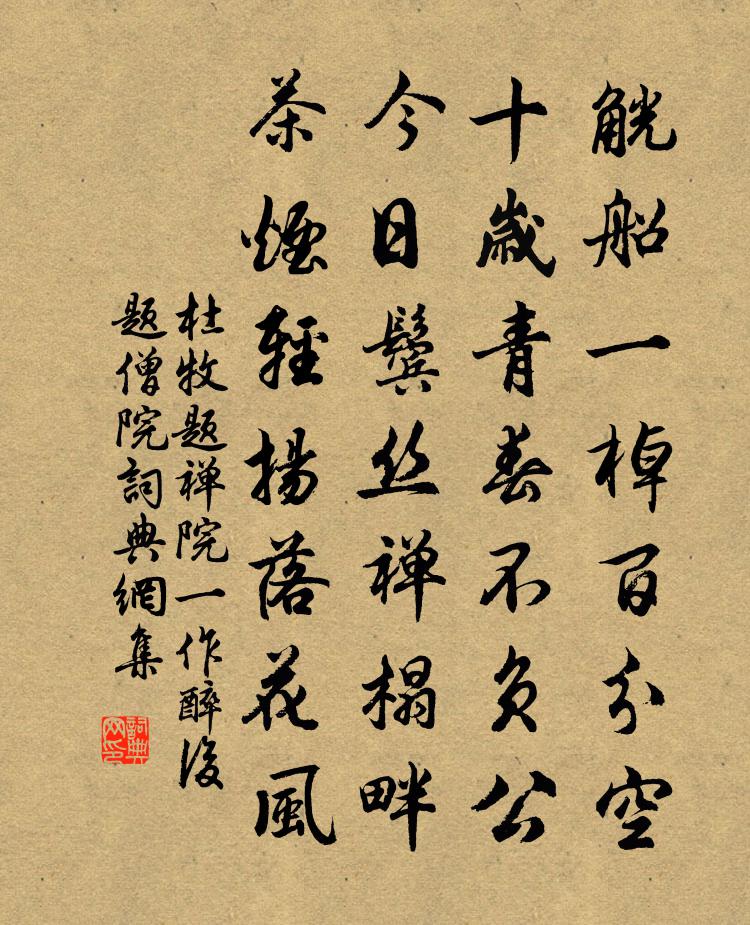 觥船一棹百分空
十歲青春不負公
今日鬢丝禅榻畔
茶煙輕揚落花風
杜牧题禅院一作醉後
题僧院詞典網集
詞典网印